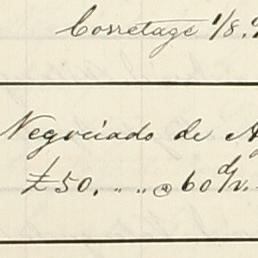 Corretage 1/8.
Negociado de
£50. " " @ 60 d/v.